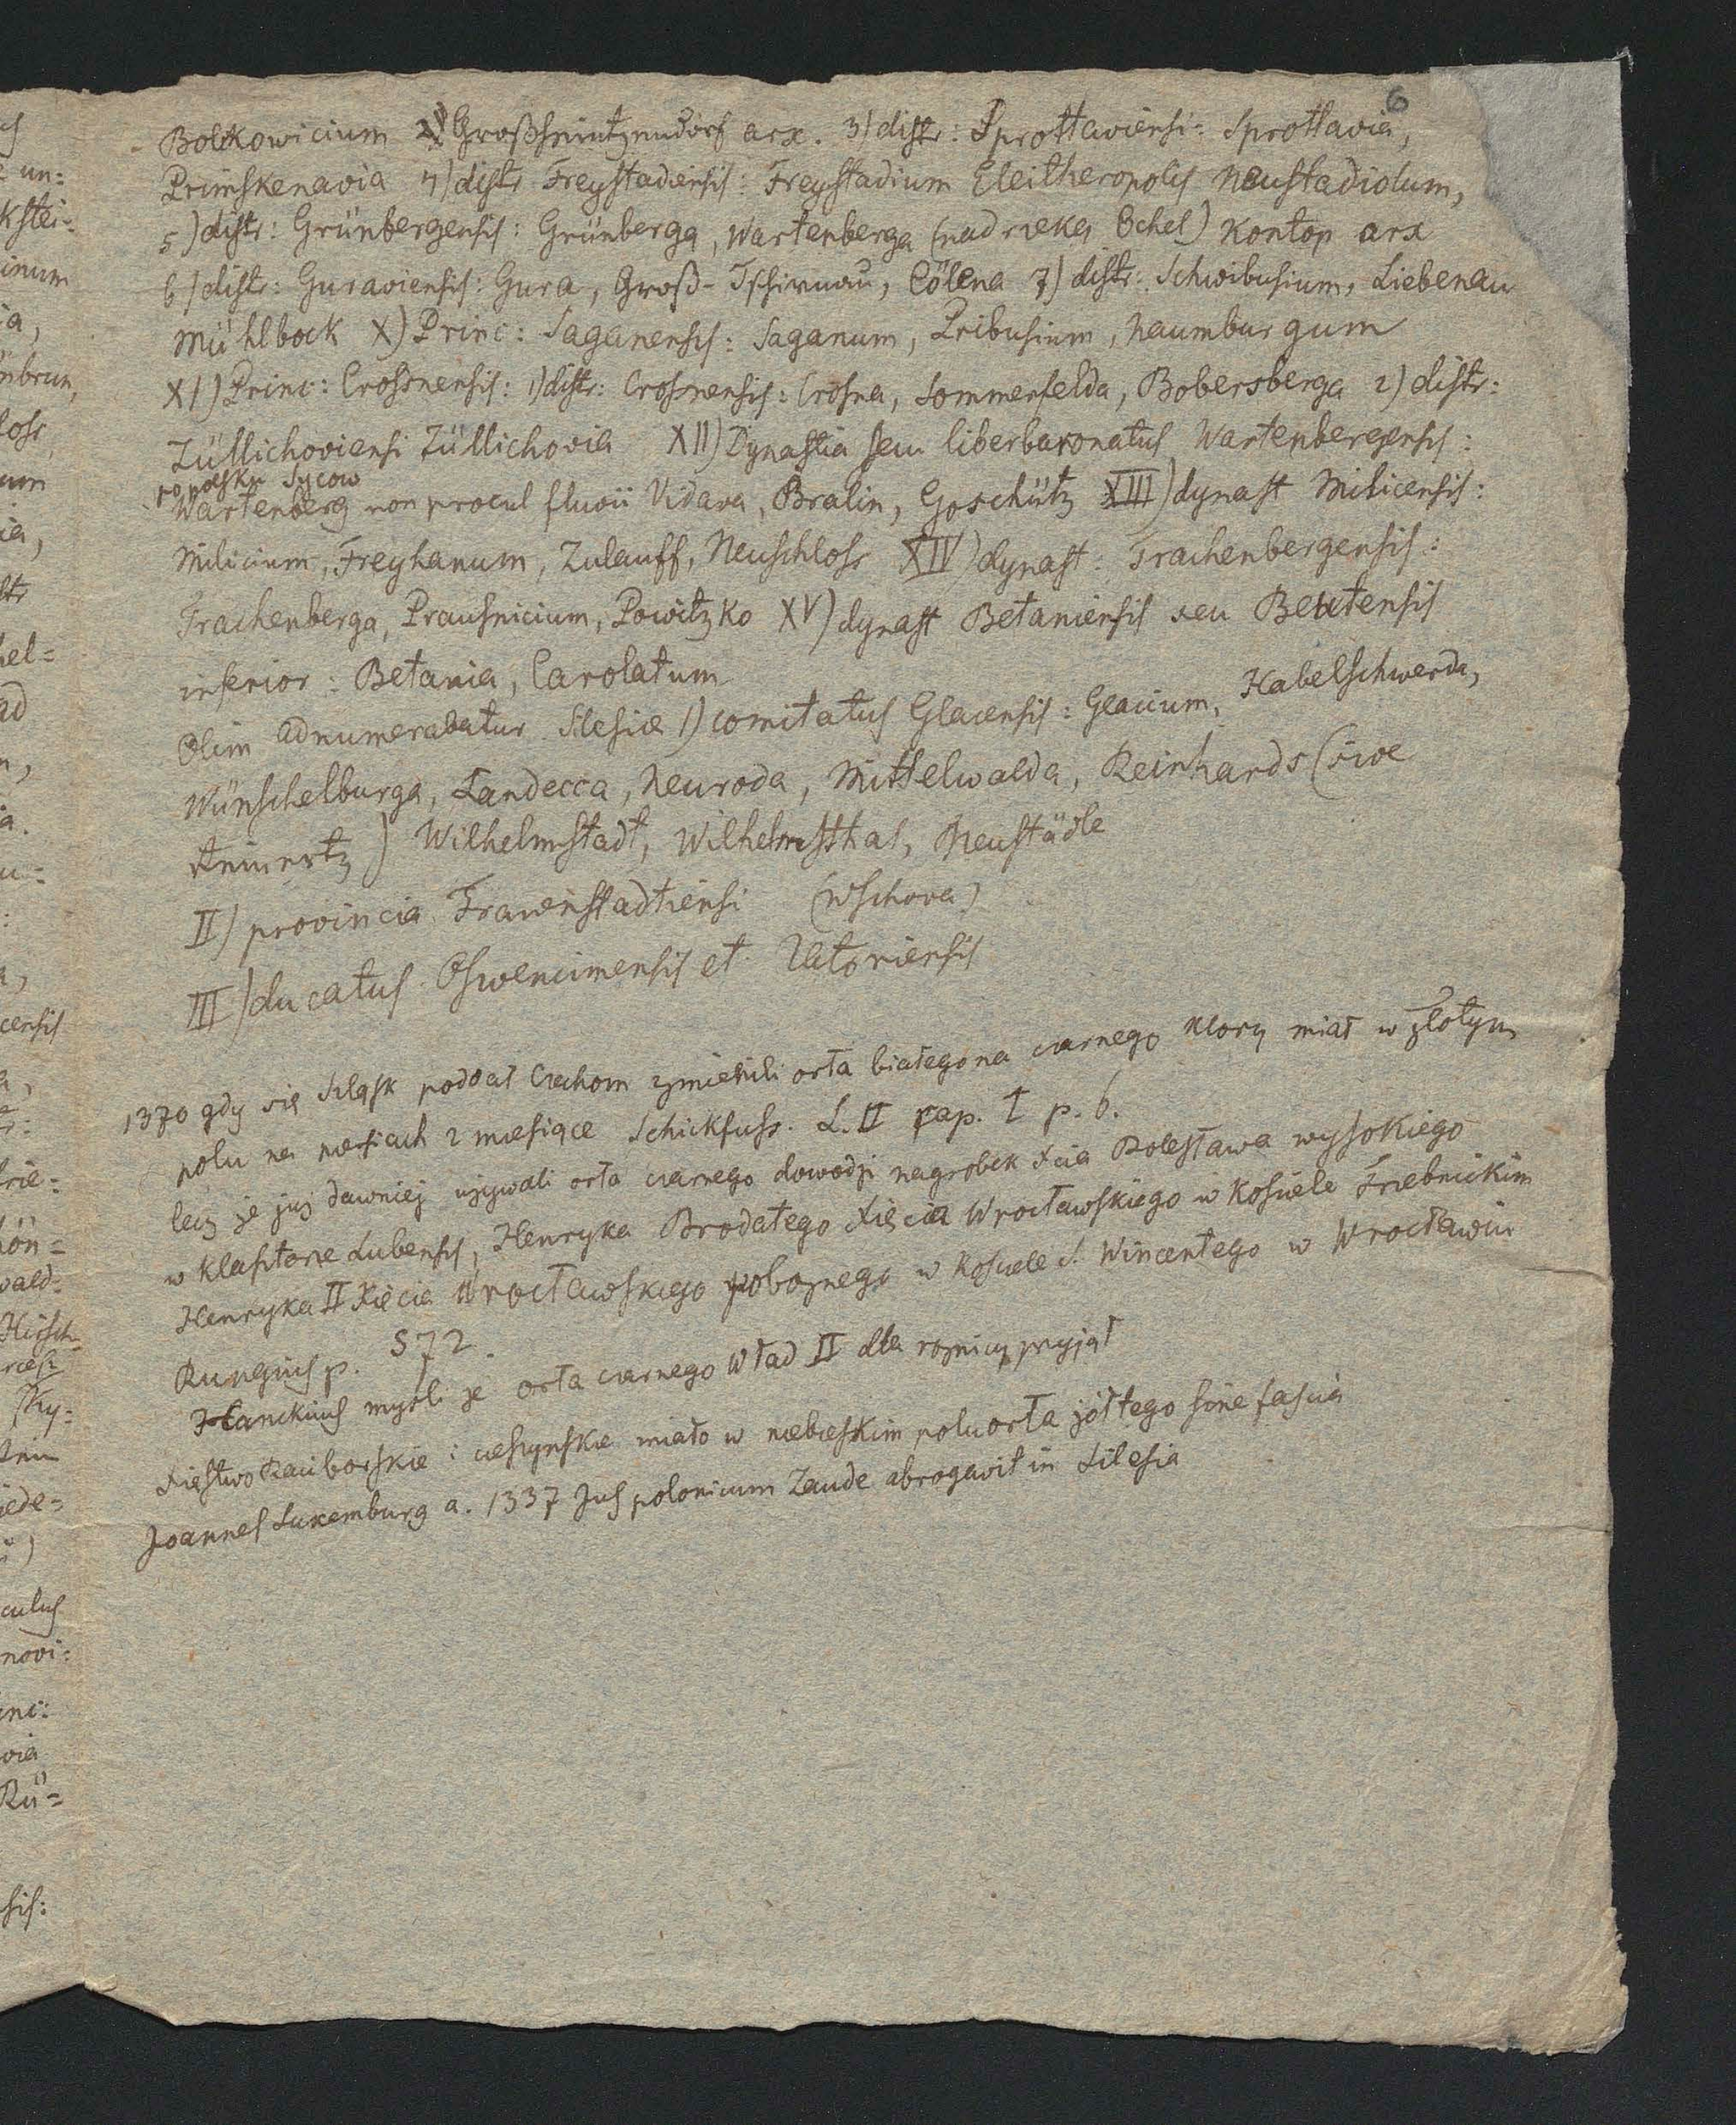 6
Bolkowicium arx. 3) distr: Sprottaviensi: Sprottavia,
Primskenavia 4) distr Freystadiensis: Freystadium Eleitheropolis Neustadiolum,
5) distr: Grünbergensis: Grünberga, Wartenberga (nad rzeką Ochel) Kontop arx
6) distr: Guraviensis: Gura, Groß-Tschirnau, Cölena 7) distr: Schwibusium, Liebenau
Mühlbock X) Princ: Saganensis: Saganum, Pribusium, Naumburgum
XI) Princ: Crosnensis: 1) distr: Crosnensis: Crosna, Sommerfelda, Bobersberga 2) distr:
Züllichoviensi Züllichovia XII) Dynastia seu liberbaronatus Wartenbergensis:
po polsku Sycow
Wartenberg non procul fluvii Vidava, Bralin, Goschütz XIII) dynast Milicensis:
Milicium, Freyhanum, Zulauff, Neuschloss XIV) dynast: Trachenbergensis:
Trachenberga, Prausnicium, Powitzko XV) dynast Betaniensis seu Beutensis
inferior: Betania, Carolatum
Olim adnumerabatur Silesiæ 1) comitatus Glacensis: Glacium, Habelschwerda,
Wünschelburga, Landecca, Neuroda, Mittelwalda, Reinhards (sive
Reinertz) Wilhelmstadt, Wilhelmsthal, Neustädle
II) provincia Frawenstadtiensi (Wschova)
III) ducatus Oswencimensis et Zatoriensis
1370 gdy się Szląsk poddał Czechom zmienili orła białego na czarnego ktory miał w złotym
polu na piersiach 2 miesiące Schickfuss. L. II cap. I p. 6.
lecz że już dawniej używali orła czarnego dowodzi nagrobek Xcia Bolesława wysokiego
w klasztorze Lubensis, Henryka Brodatego Xięcia Wrocławskiego w Kosciele Trzebnickim
Henryka II Xięcia Wrocławskiego pobożnego w Kosciele S. Wincentego w Wrocławiu
Rungius p. 572.
Hanckius mysli że orła czarnego Wład II dla roznicy przyjął
Xięstwo Raciborskie i cieszynskie miało w niebieskim polu orła żółtego sine fascia
Joannes Luxemburg a. 1337 Jus polonicum Zaude abrogavit in Silesia